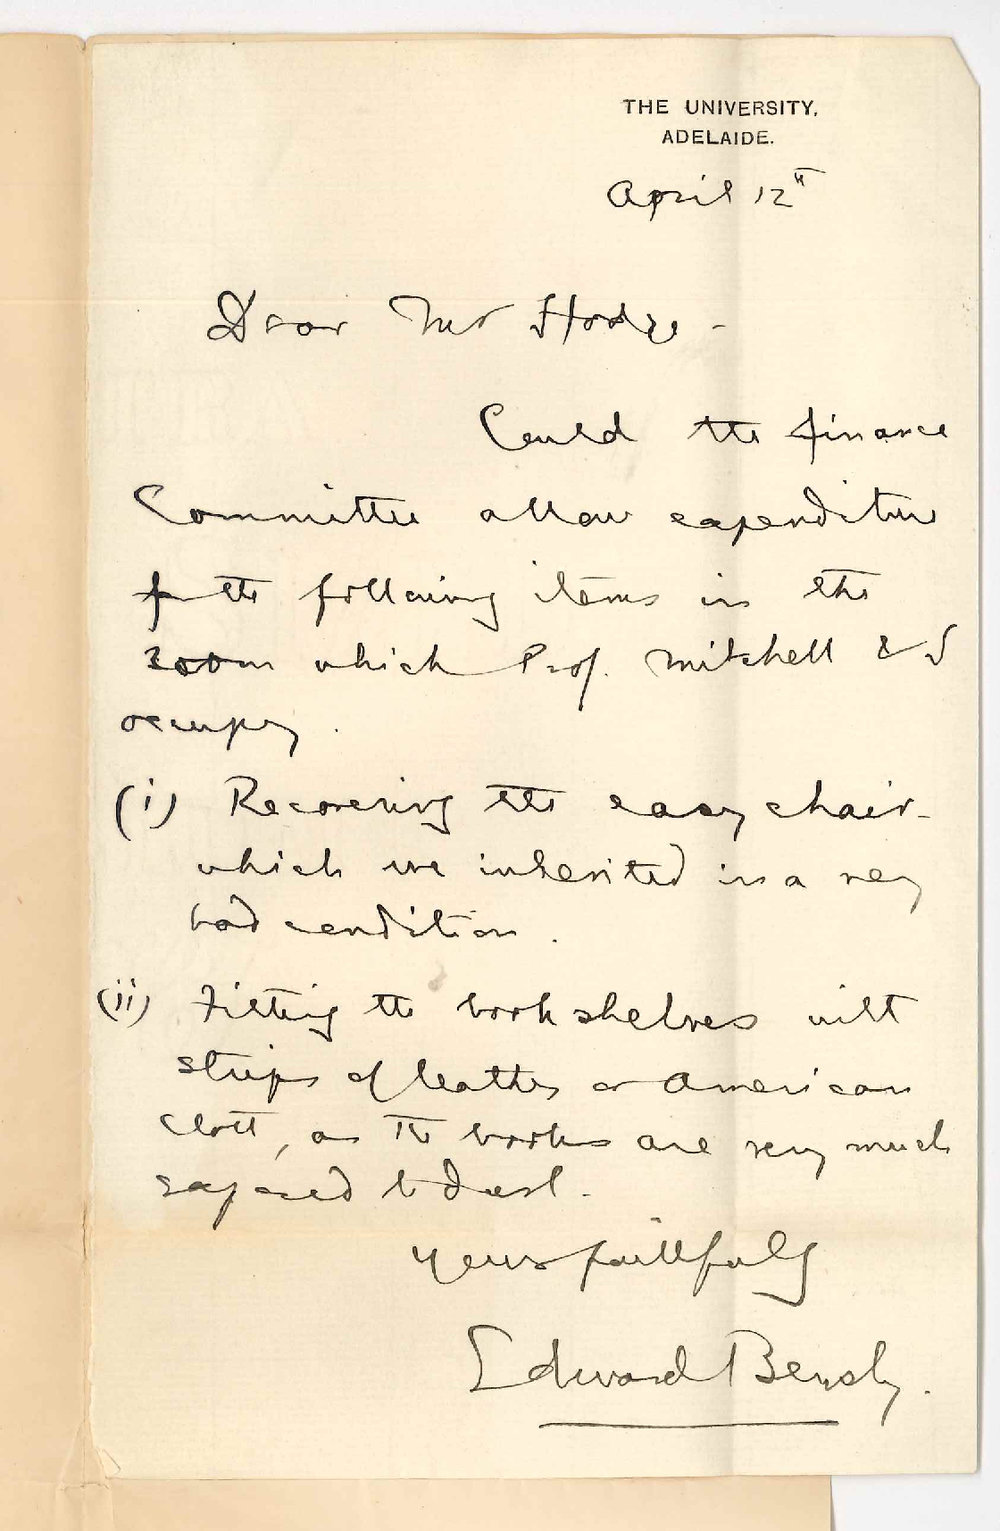 THE UNIVERSITY,
ADELAIDE.
April 12th
Dear Mr Hodge -
Could the finance
Committee allow expenditure
for the following items in the
room which Prof. Mitchell & I
occupy.
(i) Recovering the easy chair -
which we inherited in a very
bad condition.
(ii) Fitting the bookshelves with
strips of leather or American
cloth, as the books are very much
exposed to dust.
Yours faithfully
Edward Bensly.